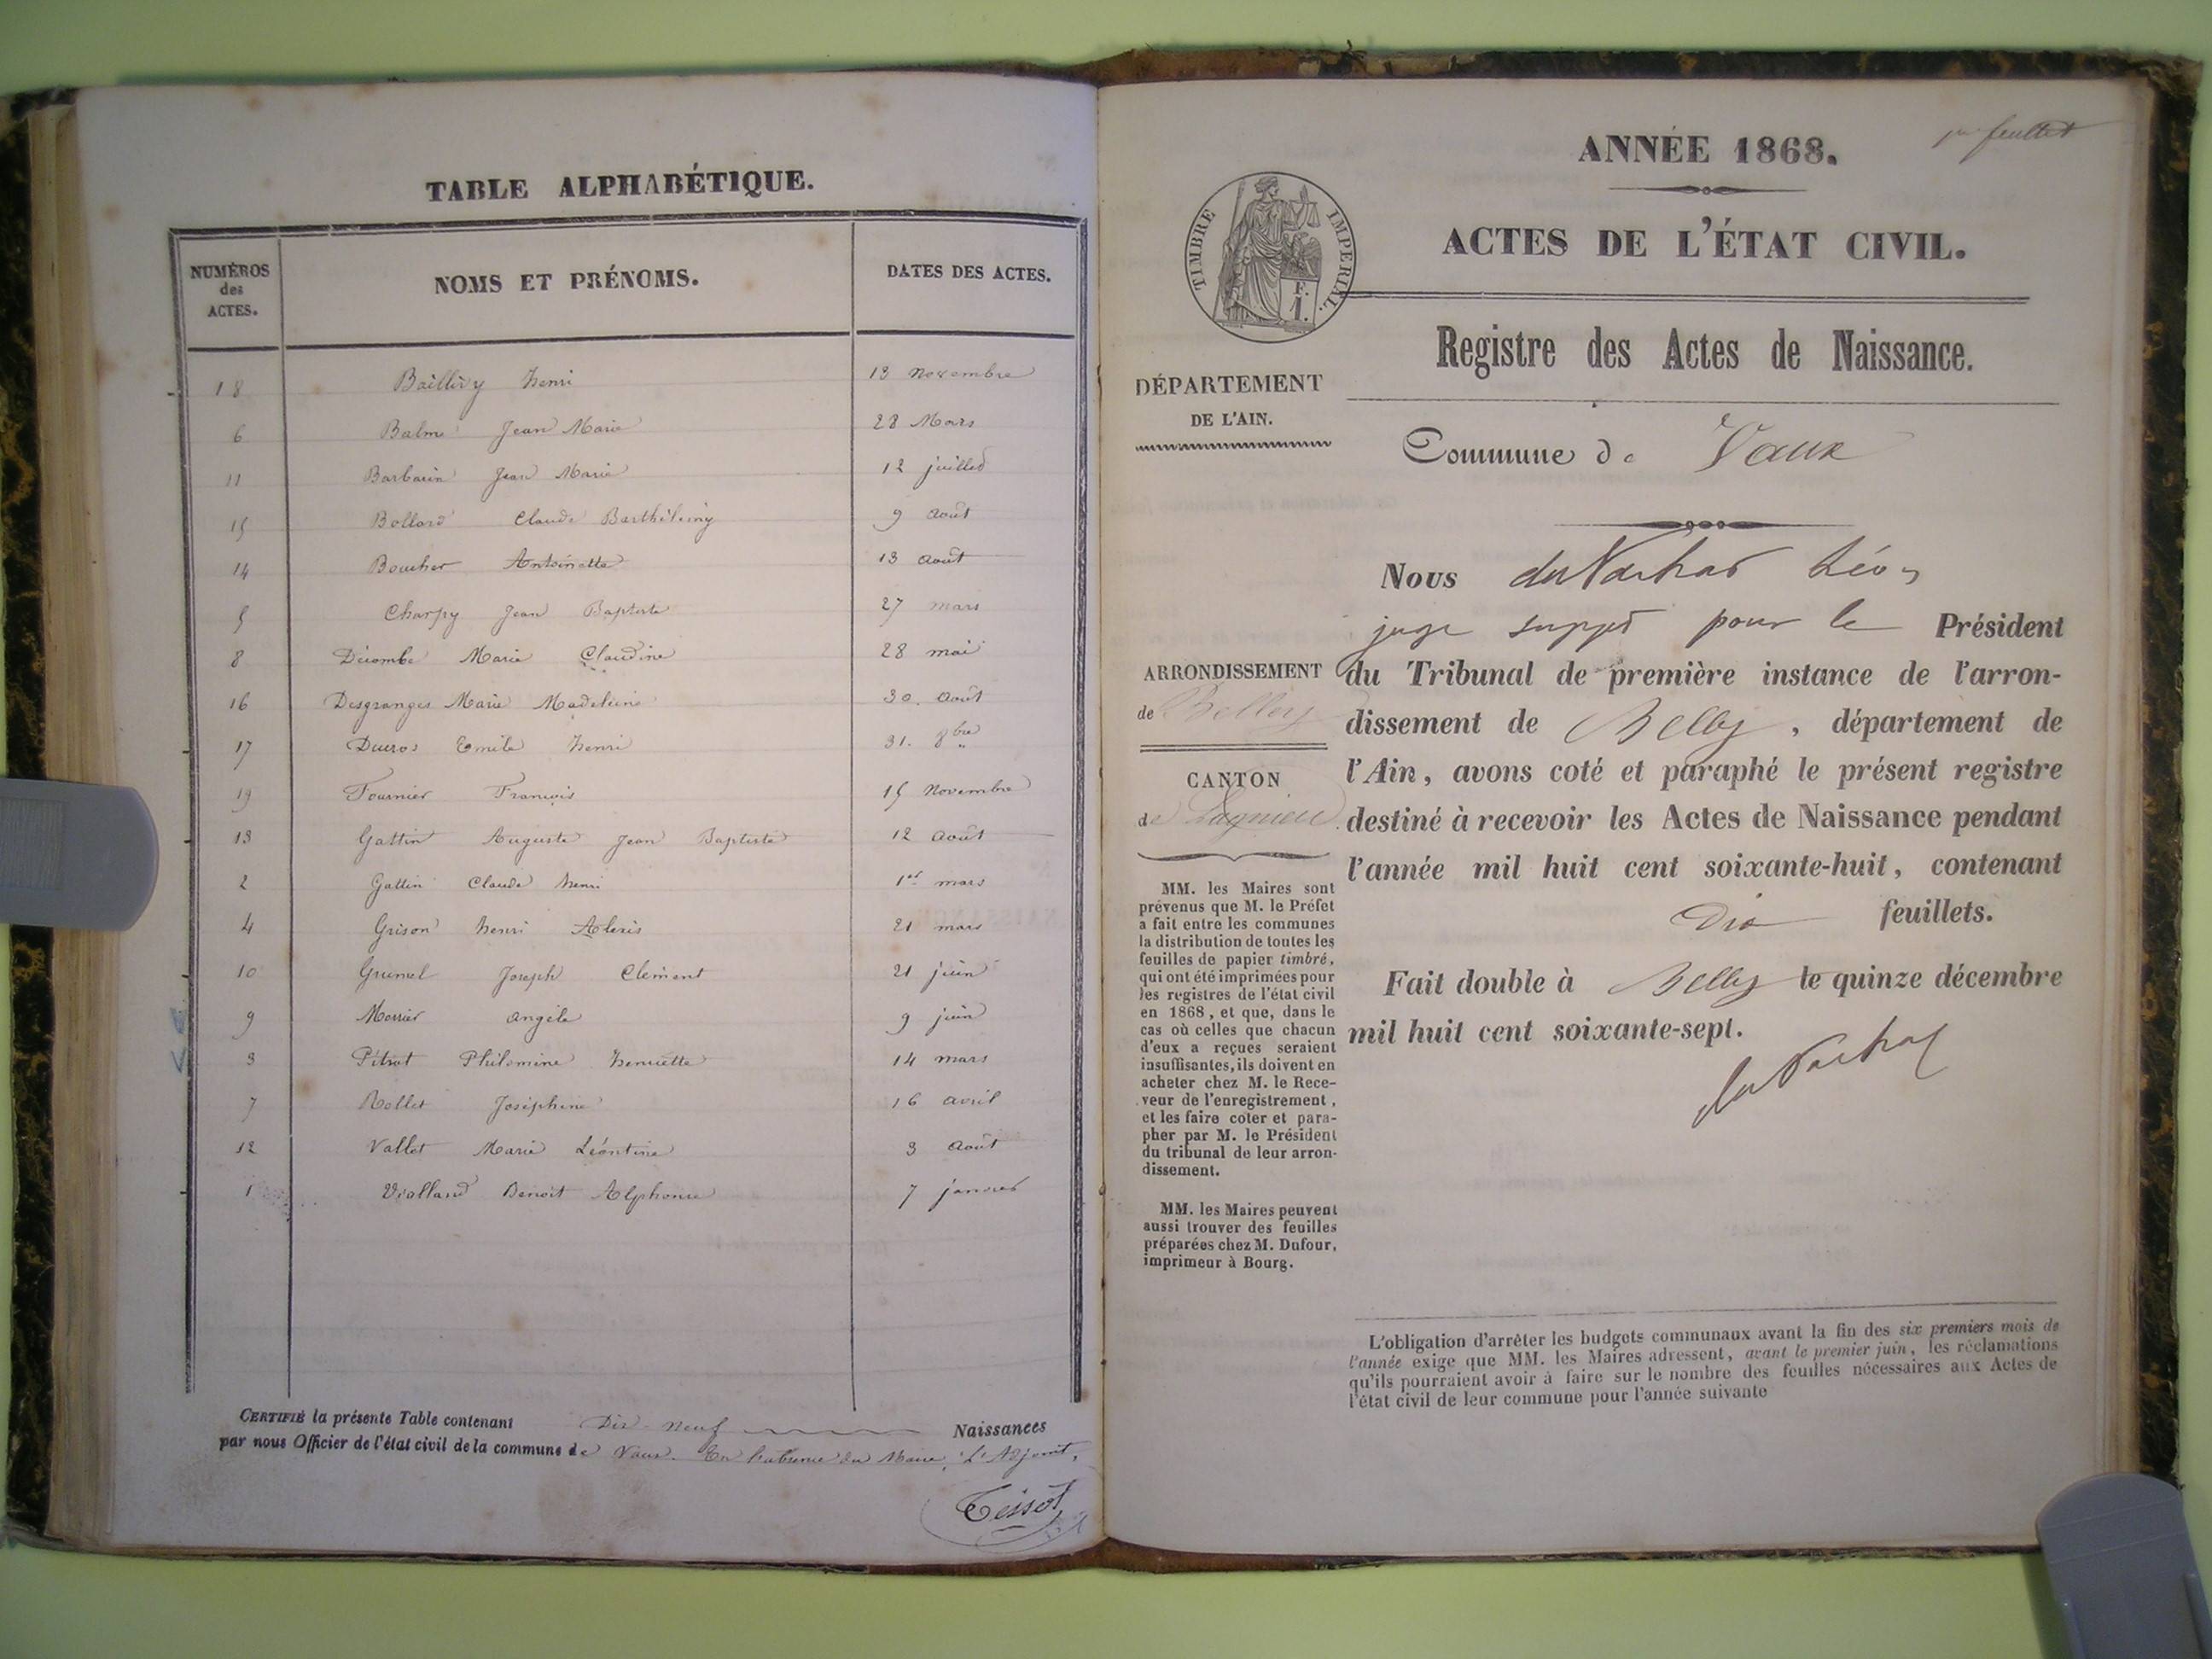 TABLE ALPHABÉTIQUE.
NUMÉROS des ACTES. NOMS ET PRÉNOMS. DATES DES ACTES.
18 Baillivy henri 13 Novembre
6 Balme Jean Marie 28 Mars
11 Barbarin Jean Marie 12 juillet
15 Bollard Claude Barthélemy 9 août
14 Boucher Antoinette 13 août
5 Charpy Jean Baptiste 27 mars
8 Décombe Marie Claudine 28 mai
16 Desgranges Marie Madeleine 30. août
17 Ducros Emile henri 31. 8bre
19 Fournier François 15 Novembre
13 Gattin Auguste Jean Baptiste 12 août
2 Gattin Claude henri 1er mars
4 Grison henri Alexis 21 mars
10 Grumel Joseph Clement 21 juin
9 Mornier angèle 9 juin
3 Pitrat Philomine henriette 14 mars
7 Rollet Joséphine 16 avril
12 Vallet Marie Léontine 3 août
1 Violland Benoit Alphonse 7 janvier
CERTIFIÉ la présente Table contenant Dix-neuf Naissances
par nous Officier de l'état civil de la commune de Vaux. En l'absence du Maire, L'Adjoint,
Tissot
1er feuillet
ANNÉE 1868.
ACTES DE L'ÉTAT CIVIL.
TIMBRE IMPERIAL.
F.
1.
Registre des Actes de Naissance.
DÉPARTEMENT
DE L'AIN.
Commune de Vaux
ARRONDISSEMENT
de Belley
CANTON
de Lagnieu
MM. les Maires sont
prévenus que M. le Préfet
a fait entre les communes
la distribution de toutes les
feuilles de papier timbré,
qui ont été imprimées pour
les registres de l'état civil
en 1868, et que, dans le
cas où celles que chacun
d'eux a reçues seraient
insuffisantes, ils doivent en
acheter chez M. le Rece-
veur de l'enregistrement,
et les faire coter et para-
pher par M. le Président
du tribunal de leur arron-
dissement.
MM. les Maires peuvent
aussi trouver des feuilles
préparées chez M. Dufour,
imprimeur à Bourg.
Nous Léon
juge suppt pour le Président
du Tribunal de première instance de l'arron-
dissement de Belley, département de
l'Ain, avons coté et paraphé le présent registre
destiné à recevoir les Actes de Naissance pendant
l'année mil huit cent soixante-huit, contenant
Dix feuillets.
Fait double à Belley le quinze décembre
mil huit cent soixante-sept.
L'obligation d'arrêter les budgets communaux avant la fin des six premiers mois de
l'année exige que MM. les Maires adressent, avant le premier juin, les réclamations
qu'ils pourraient avoir à faire sur le nombre des feuilles nécessaires aux Actes de
l'état civil de leur commune pour l'année suivante